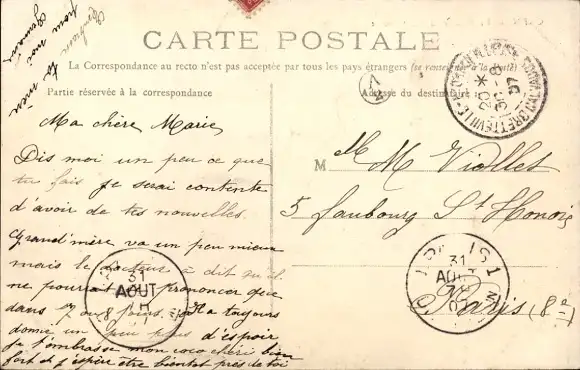 CARTE POSTALE
La Correspondance au recto n'est pas acceptée par tous les pays étrangers (se renseigner à la Poste)
Partie réservée à la correspondance
Adresse du destinataire
Ma chère Marie
Dis moi un peu ce que
tu fais je serai contente
d'avoir de tes nouvelles.
Grand'mère va un peu mieux
mais le docteur a dit qu'il
ne pourrait prononcer que
dans 7 ou 8 jours. Il a toujours
donné un peu plus d'espoir
Je t'embrasse mon coco chéri bien
fort et j'espère être bientôt près de toi
M
M M Viollet
5 faubourg St Honoré
Paris (8e)
20 * 31 -8 07
BRETTEVILLE
31
AOUT
PARIS 1
31
AOUT
pour moi
la mien